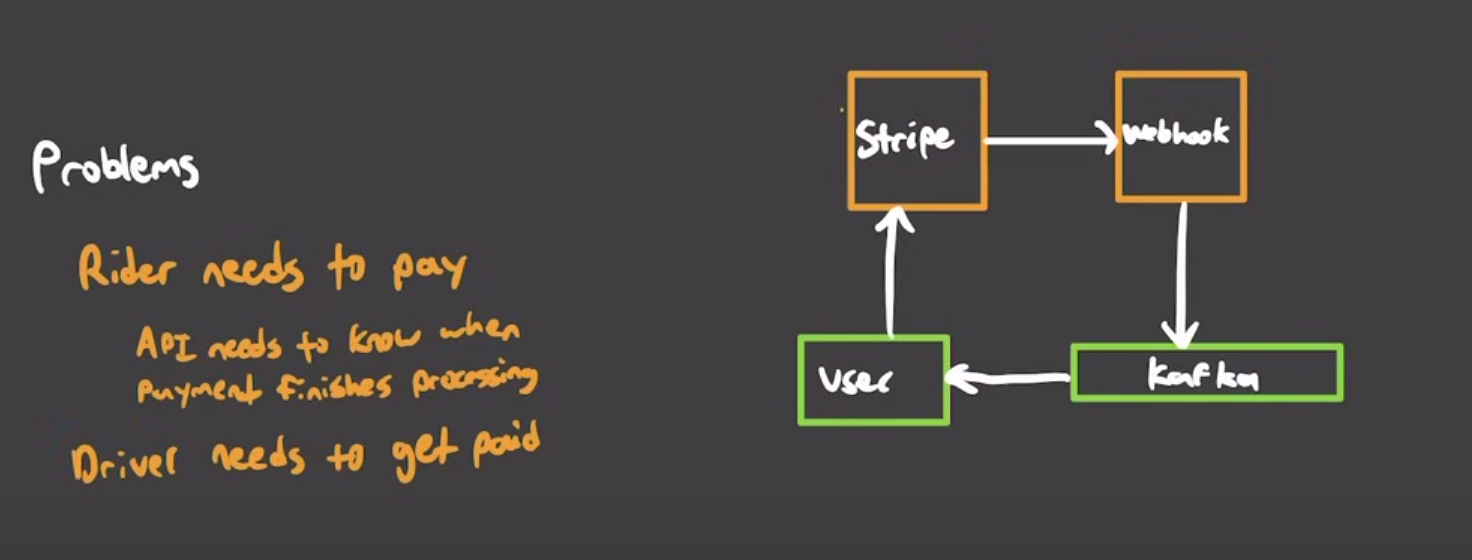 Problems
Rider needs to pay
API needs to know when
payment finishes processing
Driver needs to get paid
Stripe
webhook
User
kafka